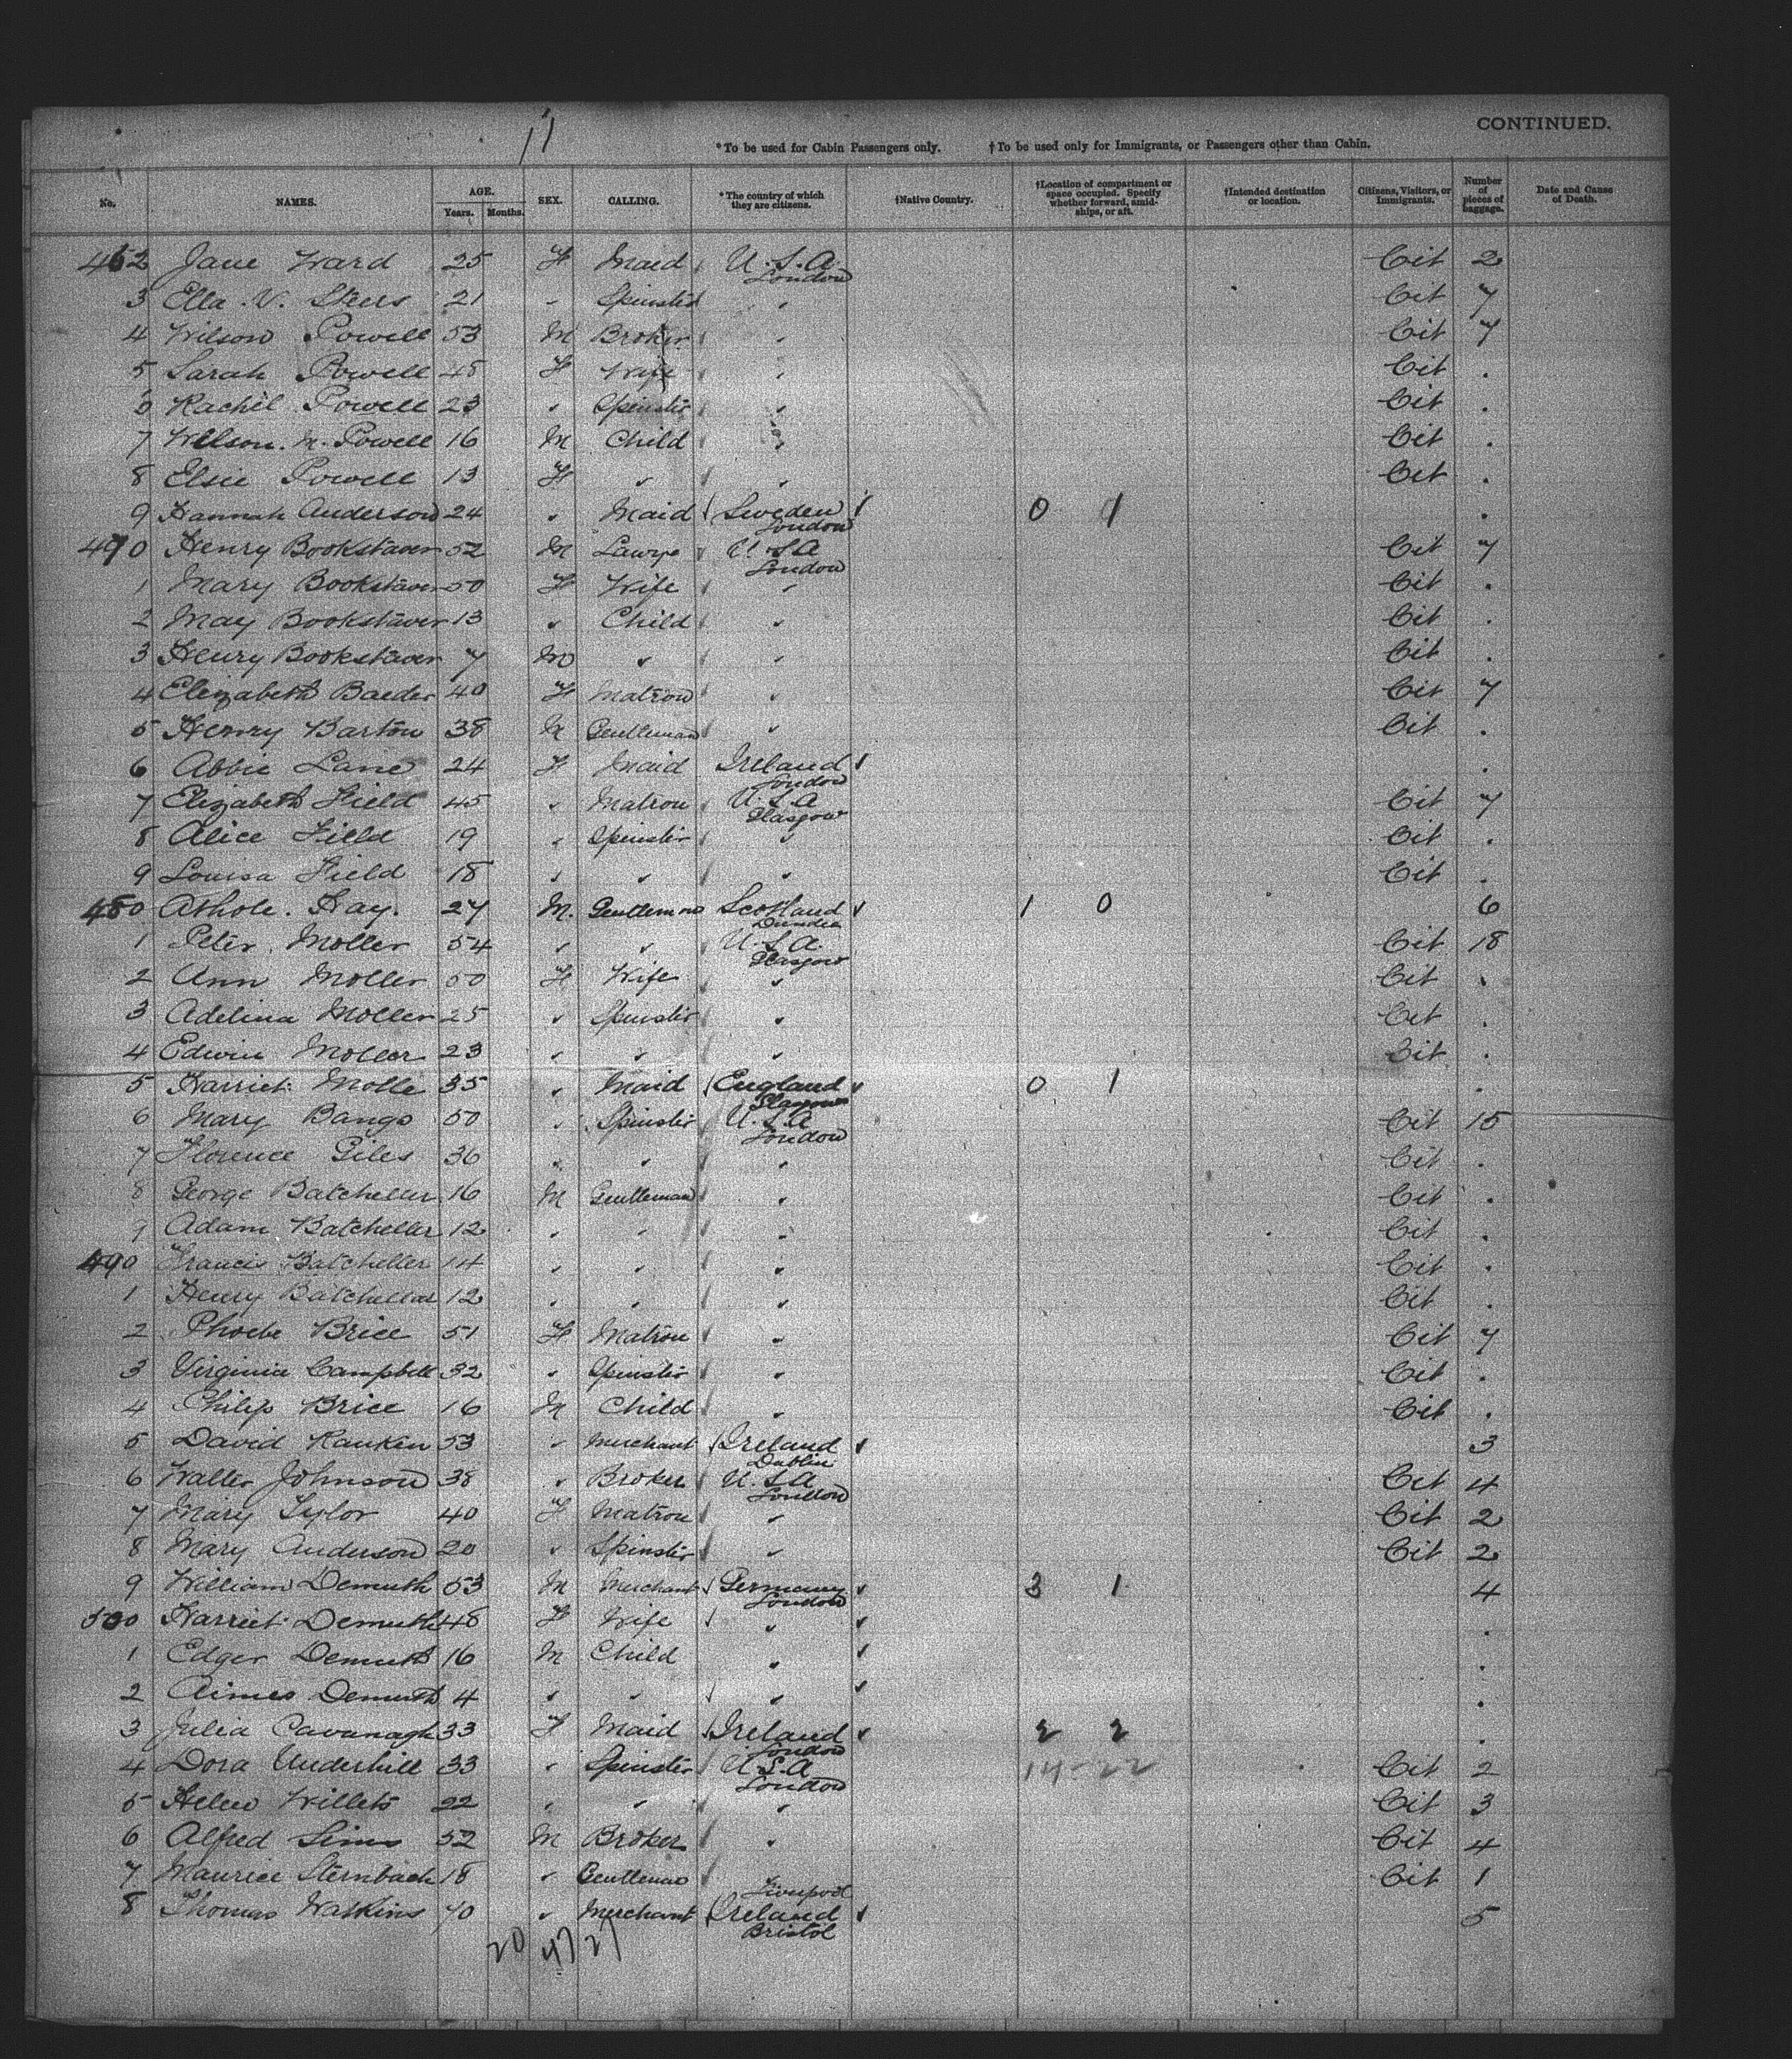 11
CONTINUED.
*To be used for Cabin Passengers only. †To be used only for Immigrants, or Passengers other than Cabin.
No. NAMES. AGE. Years. Months. SEX. CALLING. *The country of which they are citizens. †Native Country. †Location of compartment or space occupied. Specify whether forward, amidships, or aft. †Intended destination or location. Citizens, Visitors, or Immigrants. Number of pieces of baggage. Date and Cause of Death.
462 Jane Ward 25 F Maid U.S.A. London Cit 2
3 Ella V. Skers 21 " Spinster " Cit 7
4 Wilson Powell 53 M Broker " Cit 7
5 Sarah Powell 48 F Wife " Cit .
6 Rachel Powell 23 " Spinster " Cit .
7 Wilson M. Powell 16 M Child " Cit .
8 Elsie Powell 13 F " " Cit .
9 Hannah Anderson 24 " Maid Sweden London 0 1 .
490 Henry Bookstaver 52 M Lawye U.S.A London Cit 7
1 Mary Bookstaver 50 F Wife " Cit .
2 May Bookstaver 13 " Child " Cit .
3 Henry Bookstaver 7 M " " Cit .
4 Elizabeth Baeder 40 F Matron " Cit 7
5 Henry Barton 38 M Gentleman " Cit .
6 Abbie Lane 24 F Maid Ireland London .
7 Elizabeth Field 45 " Matron U.S.A Glasgow Cit 7
8 Alice Field 19 " Spinster " Cit .
9 Louisa Field 18 " " " Cit .
480 Athole. Hay. 27 M. Gentleman Scotland Dundee 1 0 6
1 Peter Moller 54 " " U.S.A. Glasgow Cit 18
2 Ann Moller 50 F Wife " Cit .
3 Adelina Moller 25 " Spinster " Cit .
4 Edwin Moller 23 " " " Cit .
5 Harriet Molle 35 " Maid England Glasgow 0 1 .
6 Mary Bangs 50 " Spinster U.S.A London Cit 15
7 Florence Giles 36 " " " Cit .
8 George Batcheller 16 M Gentleman " Cit .
9 Adam Batcheller 12 " " " Cit .
490 Francis Batcheller 14 " " " Cit .
1 Henry Batcheller 12 " " " Cit .
2 Phoebe Brice 51 F Matron " Cit 7
3 Virginia Campbell 32 " Spinster " Cit .
4 Philip Brice 16 M Child " Cit .
5 David Rankin 53 " Merchant Ireland Dublin 3
6 Walter Johnson 38 " Broker U.S.A London Cit 4
7 Mary Tylor 40 F Matron " Cit 2
8 Mary Anderson 20 " Spinster " Cit 2
9 William Demuth 53 M Merchant Germany London 3 1 4
500 Harriet Demuth 48 F Wife " .
1 Edger Demuth 16 M Child " .
2 Aimes Demuth 4 " " " .
3 Julia Cavanagh 33 F Maid Ireland London 2 2 .
4 Dora Underhill 33 " Spinster U.S.A London 14-22 Cit 2
5 Helen Willets 22 " " " Cit 3
6 Alfred Sims 52 M Broker " Cit 4
7 Maurice Sternbach 18 " Gentleman Liverpool Cit 1
8 Thomas Watkins 40 " Merchant Ireland Bristol 5
20 47 27